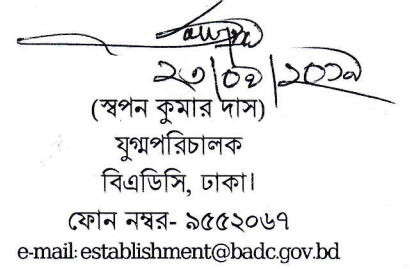 (স্বপন কুমার দাস)
যুগ্মপরিচালক
বিএডিসি, ঢাকা।
ফোন নম্বর- ৯৫৫২০৬৭
e-mail: establishment@badc.gov.bd